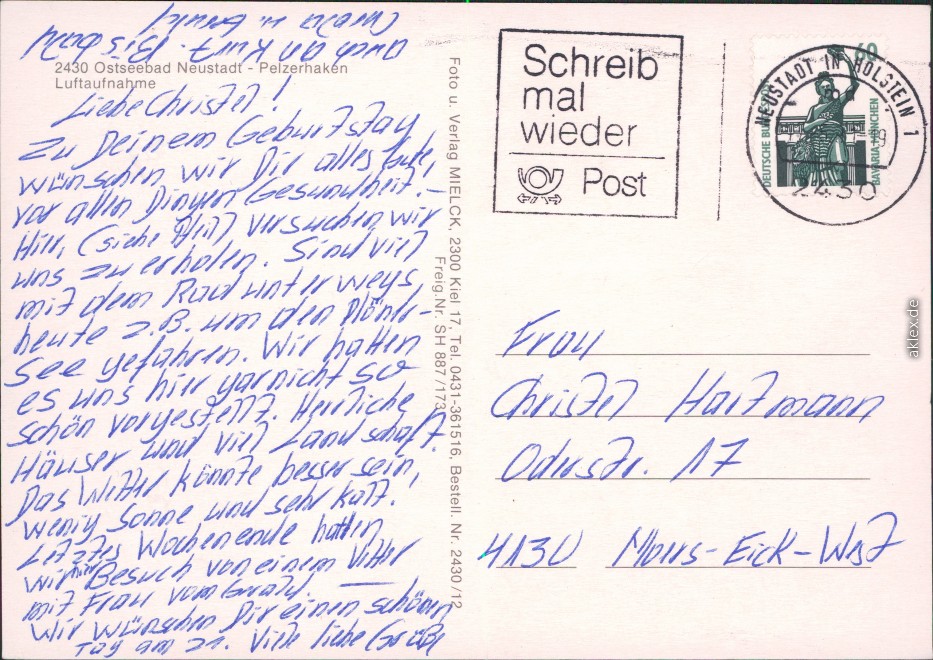 2430 Ostseebad Neustadt - Pelzerhaken
Luftaufnahme
Liebe Christel!
Zu Deinem Geburtstag
wünschen wir Dir alles Gute,
vor allen Dingen Gesundheit. –
Hier, (siehe versuchen wir
uns zu erholen. Sind viel
mit dem Rad unterwegs,
heute z.B. um den Plöner-
See gefahren. Wir hatten
es uns hier garnicht so
schön vorgestellt. Herrliche
Häuser und viel Landschaft.
Das Wetter könnte besser sein,
wenig Sonne und sehr kalt.
Letztes Wochenende hatten
wir hier Besuch von einem Vetter
mit Frau vom Grabg. —
Wir wünschen Dir einen schönen
Tag am 21. Viele liebe Grüße
auch an Kurt. Bis bald
Foto u. Verlag MIELCK, 2300 Kiel 17, Tel. 0431-361516, Bestell. Nr. 2430/12
Freig.Nr. SH 887/173
Schreib
mal
wieder
Post
NEUSTADT IN HOLSTEIN 1
2430
60
DEUTSCHE BUNDESPOST
BAVARIA MÜNCHEN
Frau
Christel Hartmann
Oderstr. 17
4130 Moers-Eick-West
aklex.de